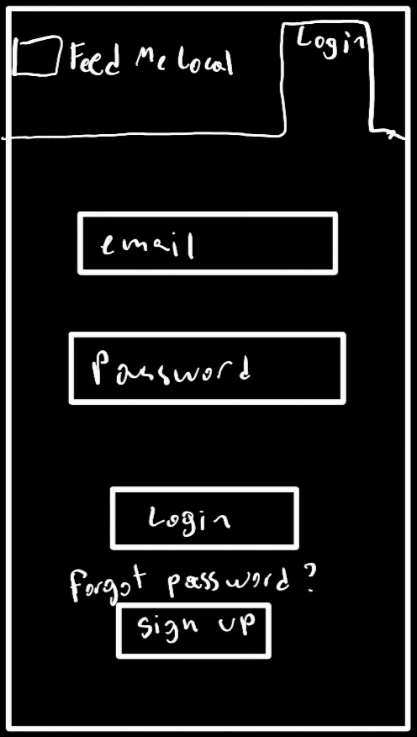 Feed Me Local
Login
email
Password
Login
forgot password?
sign up